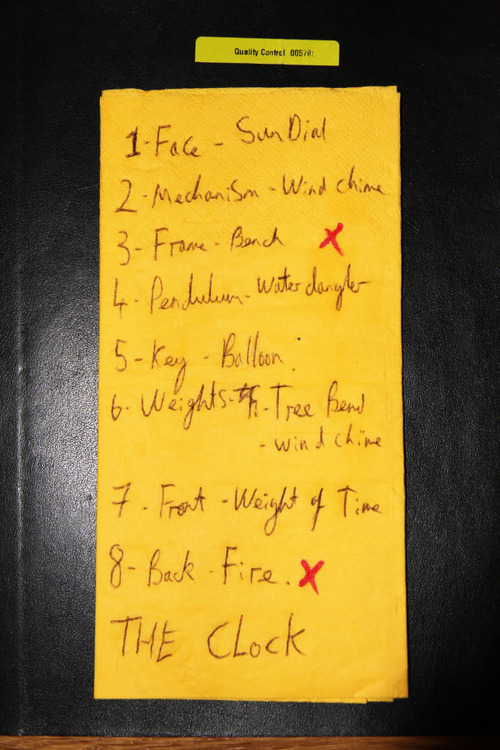 Quality Control 00578
1-Face - Sun Dial
2-Mechanism - Wind chime
3-Frame-Bench X
4-Pendulum-Water dangler
5-Key - Balloon.
6-Weights- Tree Bend
- wind chime
7-Front - Weight of Time
8-Back - Fire. X
THE CLOCK